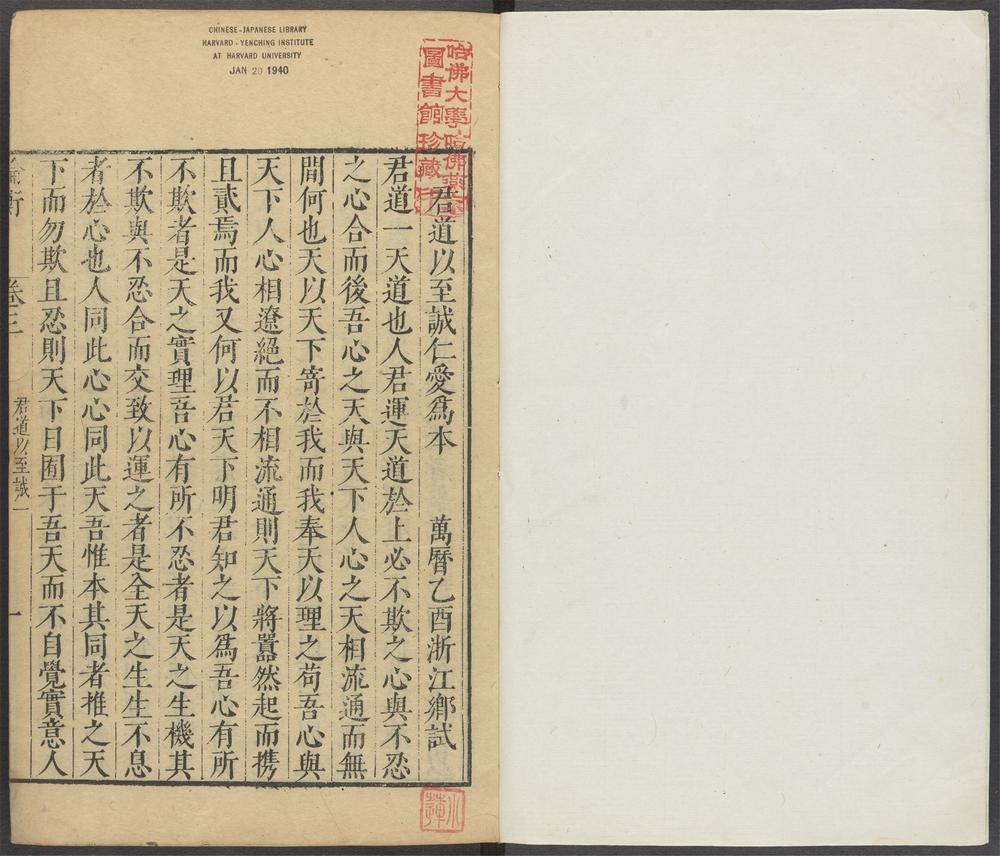 CHINESE-JAPANESE LIBRARY
HARVARD-YENCHING INSTITUTE
AT HARVARD UNIVERSITY
JAN 20 1940
哈佛大學哈佛燕京
圖書館珍藏印
君道以至誠仁愛爲本 萬曆乙酉浙江鄉試
君道一天道也人君運天道於上必不欺之心與不忍
之心合而後吾心之天與天下人心之天相流通而無
間何也天以天下寄於我而我奉天以理之苟吾心與
天下人心相遼絕而不相流通則天下將囂然起而攜
且貳焉而我又何以君天下明君知之以爲吾心有所
不欺者是天之實理吾心有所不忍者是天之生機其
不欺與不忍合而交致以運之者是全天之生生不息
者於心也人同此心心同此天吾惟本其同者推之天
下而勿欺且忍則天下日囿于吾天而不自覺實意人
衡 卷三 君道以至誠一 一